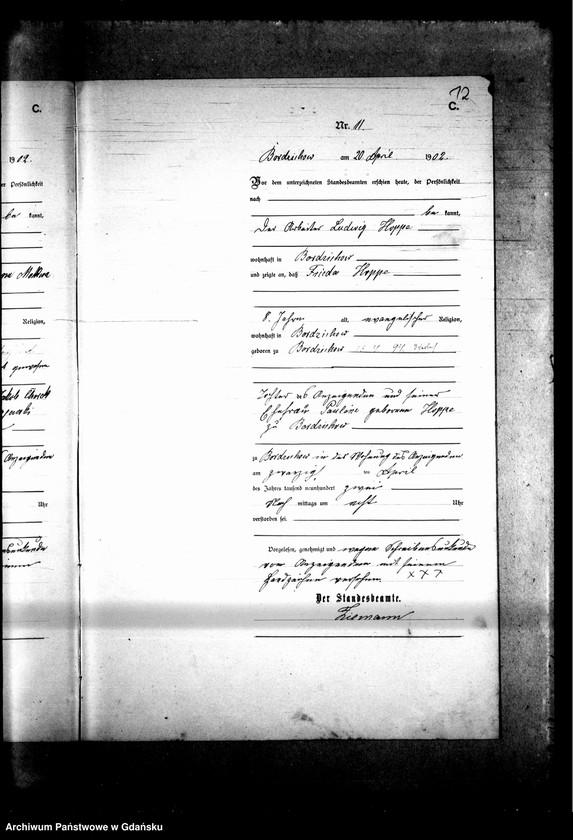 C.
1902.
der Persönlichkeit
be kannt,
Religion,
Anzeigenden
Uhr
12
C.
Nr. 11.
Bordzichow am 20 April 1902.
Vor dem unterzeichneten Standesbeamten erschien heute, der Persönlichkeit
nach
be kannt,
Der Arbeiter Ludwig Hoppe
wohnhaft in Bordzichow
und zeigte an, daß Frieda Hoppe
8 Jahre alt, evangelischer Religion,
wohnhaft in Bordzichow
geboren zu Bordzichow
Tochter des Anzeigenden und seiner
Ehefrau Pauline geborene Hoppe
zu Bordzichow
zu Bordzichow in der Wohnung des Anzeigenden
am zwanzigsten April
des Jahres tausend neunhundert zwei
Nach mittags um acht Uhr
verstorben sei.
Vorgelesen, genehmigt und wegen Schreibensunkunde
vom Anzeigenden mit seinem
Handzeichen versehen. XXX
Der Standesbeamte.
Ziemann
Archiwum Państwowe w Gdańsku